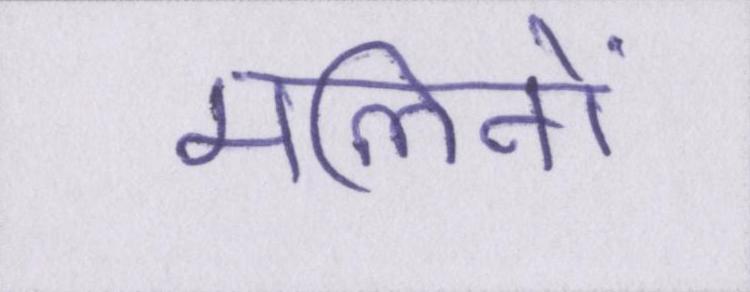 मलिनों